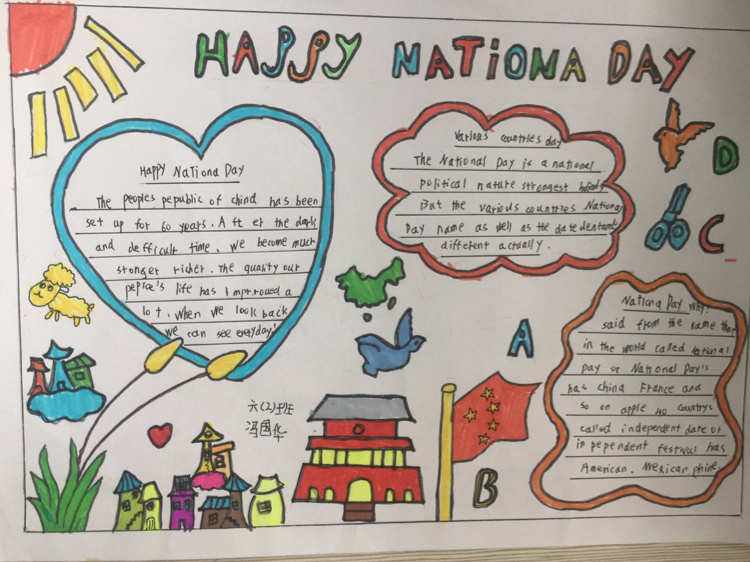 HAPPY NATIONA DAY
Happy Nationa Day
The peoples pepublic of china has been
set up for 60 years. Aft er the dark
and defficult time, we become much
stronger richer. The quality our
peplce's life has improued a
lot. When we look back
we can see everyday!
Various countries day
The National Day is a national
political nature strongest holiday
But the various countries National
Day name as well as the date
different actually.
Nationa Day why?
said from the name then
in the world called National
Day or National Day's
has china France and
so on apple 40 countrys
called independent date or
in pependent festival has
American. Mexican
D
C
A
B
六(2)班
冯国华